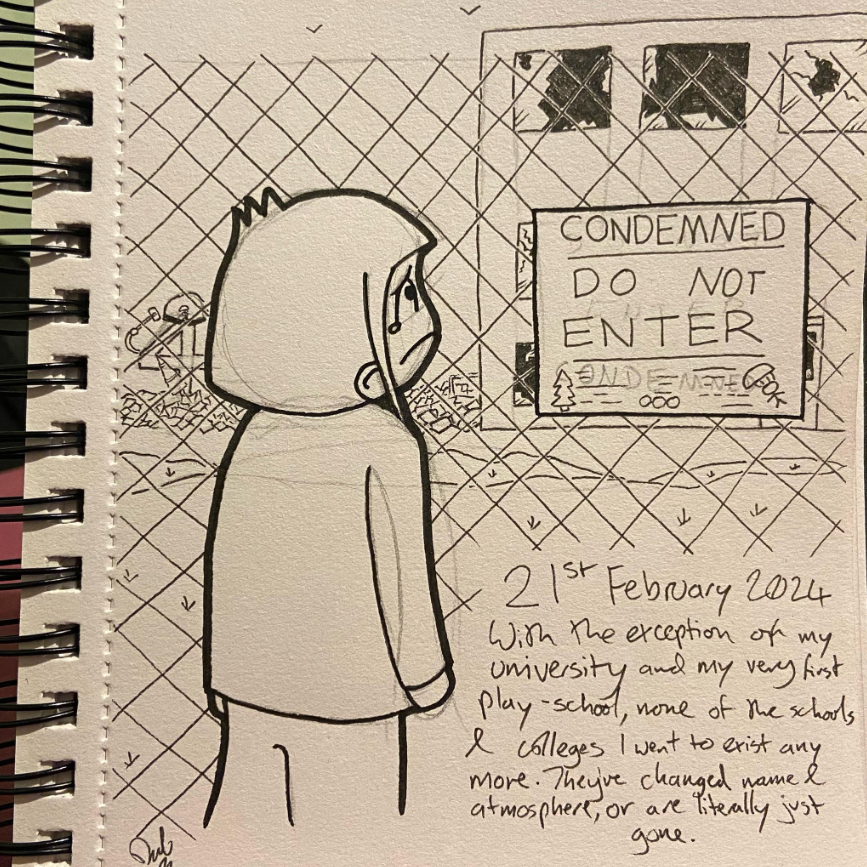 CONDEMNED
DO NOT
ENTER
21st February 2024
With the exception of my
university and my very first
play-school, none of the schools
& colleges I went to exist any
more. They've changed name &
atmosphere, or are literally just
gone.